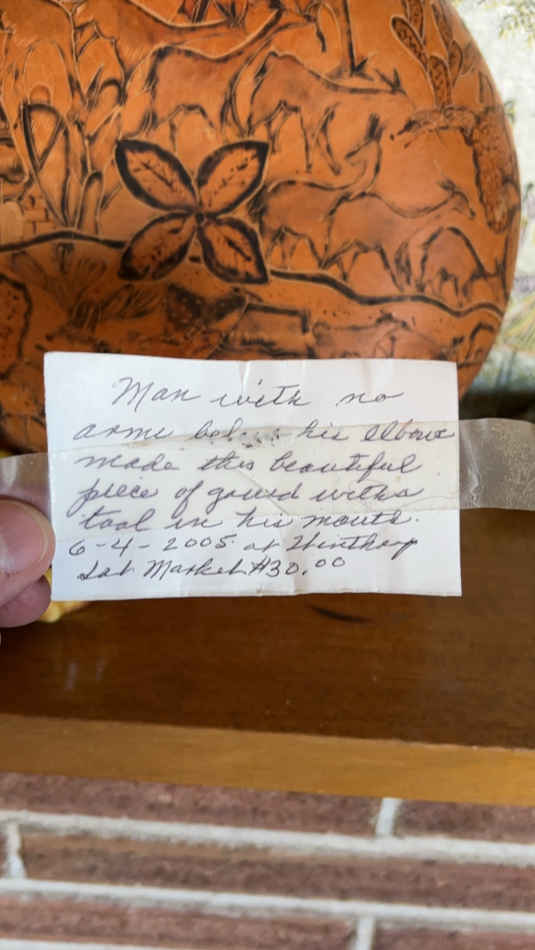 Man with no
arms bel... his elbows
made this beautiful
piece of gourd with a
tool in his mouth.
6-4-2005 at Winthrop
Sat Market $30.00